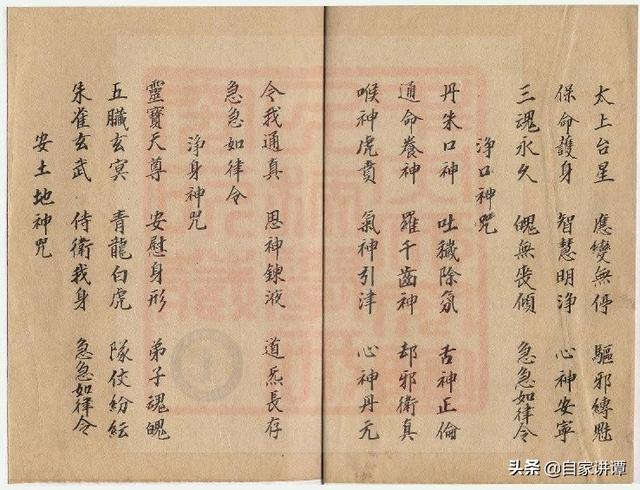 太上台星 應變無停 驅邪縛魅
保命護身 智慧明淨 心神安寧
三魂永久 魄無喪傾 急急如律令
淨口神咒
丹朱口神 吐穢除氛 舌神正倫
通命養神 羅千齒神 却邪衛真
喉神虎賁 氣神引津 心神丹元
令我通真 思神鍊液 道炁長存
急急如律令
淨身神咒
靈寶天尊 安慰身形 弟子魂魄
五臟玄冥 青龍白虎 隊仗紛紜
朱雀玄武 侍衛我身 急急如律令
安土地神咒
头条 @自家讲谭